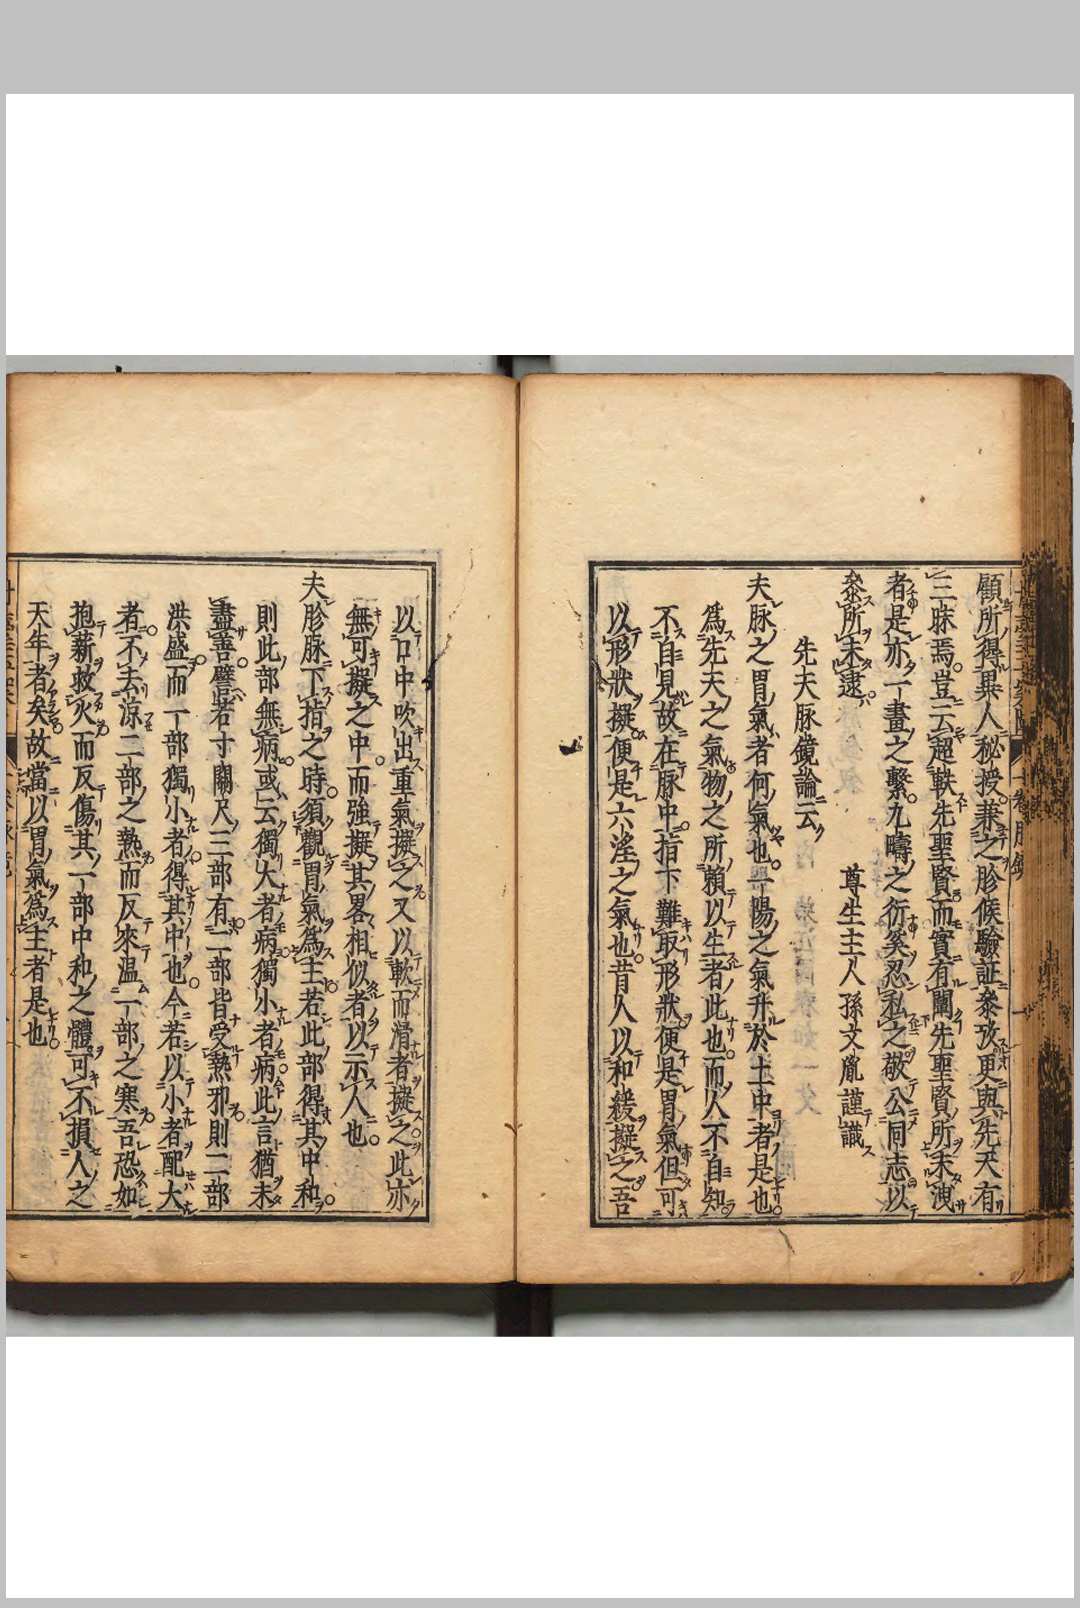 顧所得異人秘授兼之胗候驗証叅攷更與先天有
三昧焉豈云超軼先聖賢而實有闡先聖賢所未洩
者是亦一畫之繫九疇之衍奚忍私之敬公同志以
叅所未逮
尊生主人孫文胤謹識
先夫脉鏡論云
夫脉之胃氣者何氣也一陽之氣升於土中者是也
爲先天之氣物之所賴以生者此也而人不自知
不自見故在脉中指下難取形狀便是胃氣但可
以形狀擬便是六淫之氣也昔人以和緩擬之吾
以口中吹出重氣擬之又以軟而滑者擬之此亦
無可擬之中而強擬其畧相似者以示人也
夫胗脉下指之時須觀胃氣爲主若此部得其中和
則此部無病或云獨大者病獨小者病此言猶未
盡善譬若寸關尺三部有二部皆受熱邪則二部
洪盛而一部獨小者得其中也今若以小者配大
者不去涼二部之熱而反來温一部之寒吾恐如
抱薪救火而反傷其一部中和之體可不損人之
天年者矣故當以胃氣爲主者是也